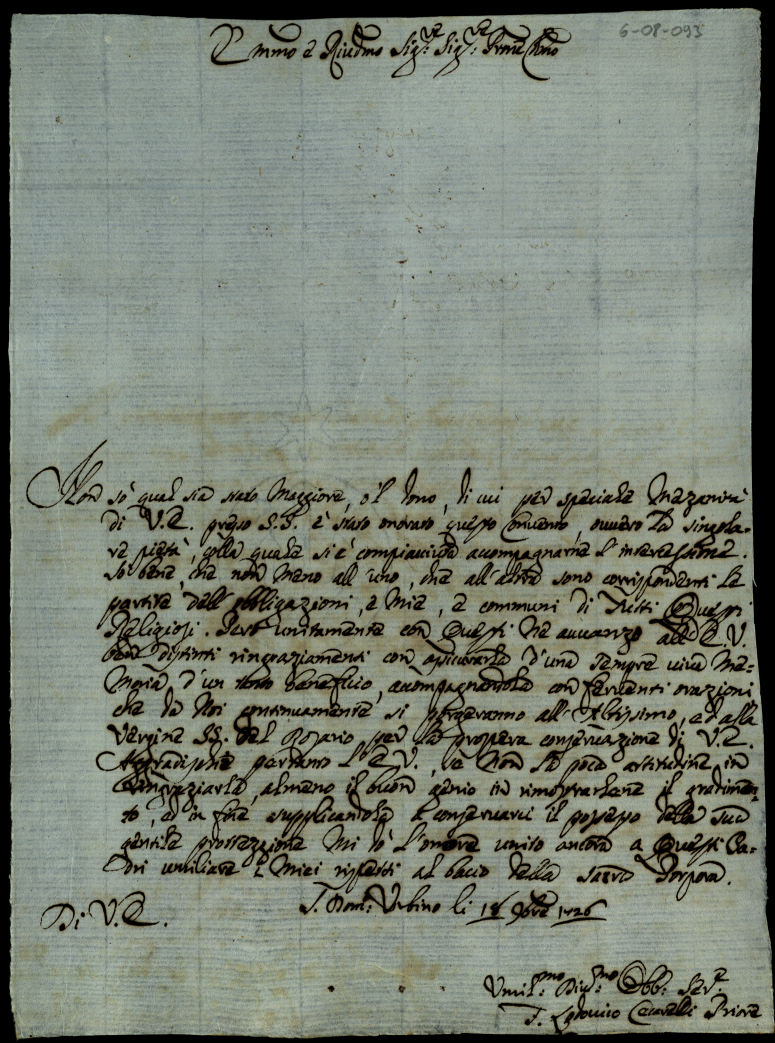 6-08-093
Emmo e Riudmo Sig:re Sig:re Prone Cmo
Non sò qual sia stato Maggiore, o'l dono, di cui per speciale Mezanità
di V.E. presso S.S. è stato onorato questo Convento, ovvero la singola-
re pietà, colla quale si è compiaciuta accompagnarne l'interessame.
So bene, che non meno all'uno, che all'altra sono corrispondenti le
partite dell'obbligazioni, e mie, e communi di Tutti Questi
Religiosi. Però unitamente con Questi ne avvanzo all'E.V.
ben distinti ringraziamenti con assicurarla d'una sempre viva Me-
moria d'un tanto beneficio, accompagnandola con ferventi orazioni
che da Noi continuamente si porgeranno all'Altissimo, ed alla
Vergine SS. del Rosario per la prospera conservazione di V.E.
Aggradisca pertanto l'E.V., se non la poca attitudine in
ringraziarla, almeno il buon genio in rimostrarlene il gradimen-
to, ed in fine supplicandola a conservarci il possesso della sua
gentile protezzione Mi dò l'onore unito ancora a Questi Pa-
dri umiliare i Miei rispetti al bacio della Sacra Porpora.
Di V.E.
S. Dom:co Urbino li 16 9bre 1726
Umil:mo Dev:mo Obb: Ser:e
F. Lodovico Priore